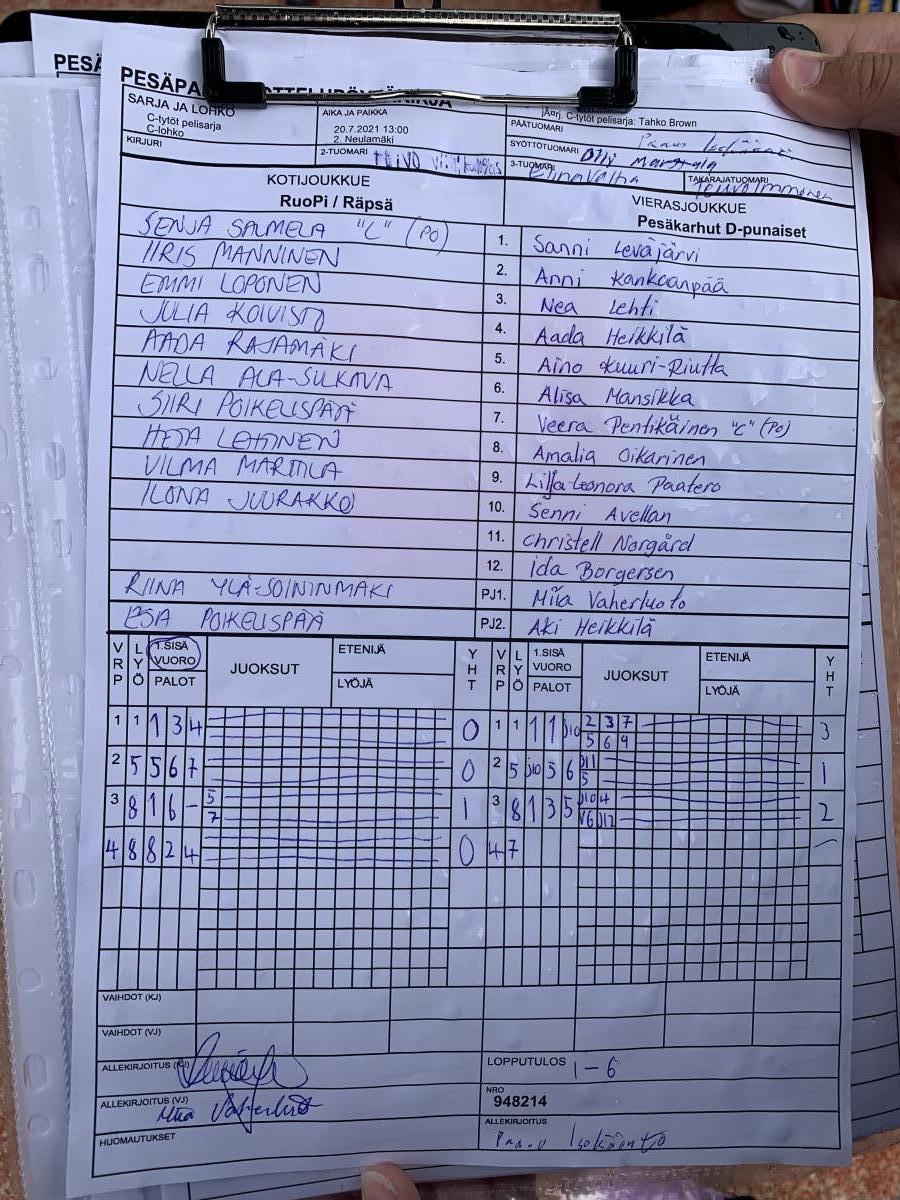 PESÄPA
SARJA JA LOHKO
C-tytöt pelisarja
C-lohko
KIRJURI
AIKA JA PAIKKA
20.7.2021 13:00
2. Neulamäki
2-TUOMARI
jÄärj. C-tytöt pelisarja: Tahko Brown
PÄÄTUOMARI
SYÖTTÖTUOMARI
3-TUOMARI
TAKARAJATUOMARI
Teuvo Immonen
KOTIJOUKKUE
RuoPi / Räpsä
VIERASJOUKKUE
Pesäkarhut D-punaiset
SENJA SALMELA "C" (PO) 1. Sanni Leväjärvi
IIRIS MANNINEN 2. Anni Kankaanpää
EMMI LOPONEN 3. Nea Lehti
JULIA KOIVISTO 4. Aada Heikkilä
AADA RAJAMÄKI 5. Aino Kuuri-Riutta
NELLA ALA-SULKAVA 6. Alisa Mansikka
SIIRI POIKELISPÄÄ 7. Veera Pentikäinen "C" (PO)
HETA LEHTINEN 8. Amalia Oikarinen
VILMA MARTTILA 9. Lilja-Leonora Paatero
ILONA JUURAKKO 10. Senni Avellan
11. Christell Norgård
12. Ida Borgersen
RIINA YLÄ-SOININMÄKI PJ1. Miia Vaherluoto
ESA POIKELISPÄÄ PJ2. Aki Heikkilä
VRP LYÖ 1.SISÄ VUORO PALOT JUOKSUT ETENIJÄ LYÖJÄ YHT VRP LYÖ 1.SISÄ VUORO PALOT JUOKSUT ETENIJÄ LYÖJÄ YHT
1 1 1 3 4 0 1 1 1 1 J10 2 3 7 3
5 6 9
2 5 5 6 7 0 2 5 J10 5 6 J11 1
5
3 8 1 6 - 5 1 3 8 1 3 5 J10 4 2
7 V6 J12
4 8 8 2 4 0 4 7 –
VAIHDOT (KJ)
VAIHDOT (VJ)
ALLEKIRJOITUS (KJ)
LOPPUTULOS 1-6
ALLEKIRJOITUS (VJ) Miia Vaherluoto
NRO
948214
HUOMAUTUKSET
ALLEKIRJOITUS